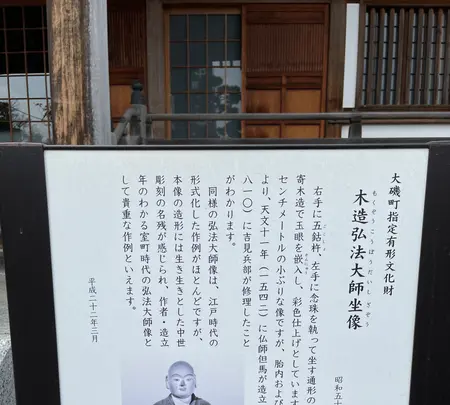 大磯町指定有形文化財
もくぞうこうぼうだいしざぞう
木造弘法大師坐像
昭和五十
右手に五鈷杵、左手に念珠を執って坐す通形の
寄木造で玉眼を嵌入し、彩色仕上げとしています
センチメートルの小ぶりな像ですが、胎内および
より、天文十一年（一五四二）に仏師但馬が造立
八一〇）に吉見兵部が修理したこと
がわかります。
同様の弘法大師像は、江戸時代の
形式化した作例がほとんどですが、
本像の造形には生き生きとした中世
彫刻の名残が感じられ、作者・造立
年のわかる室町時代の弘法大師像と
して貴重な作例といえます。
平成二十二年三月